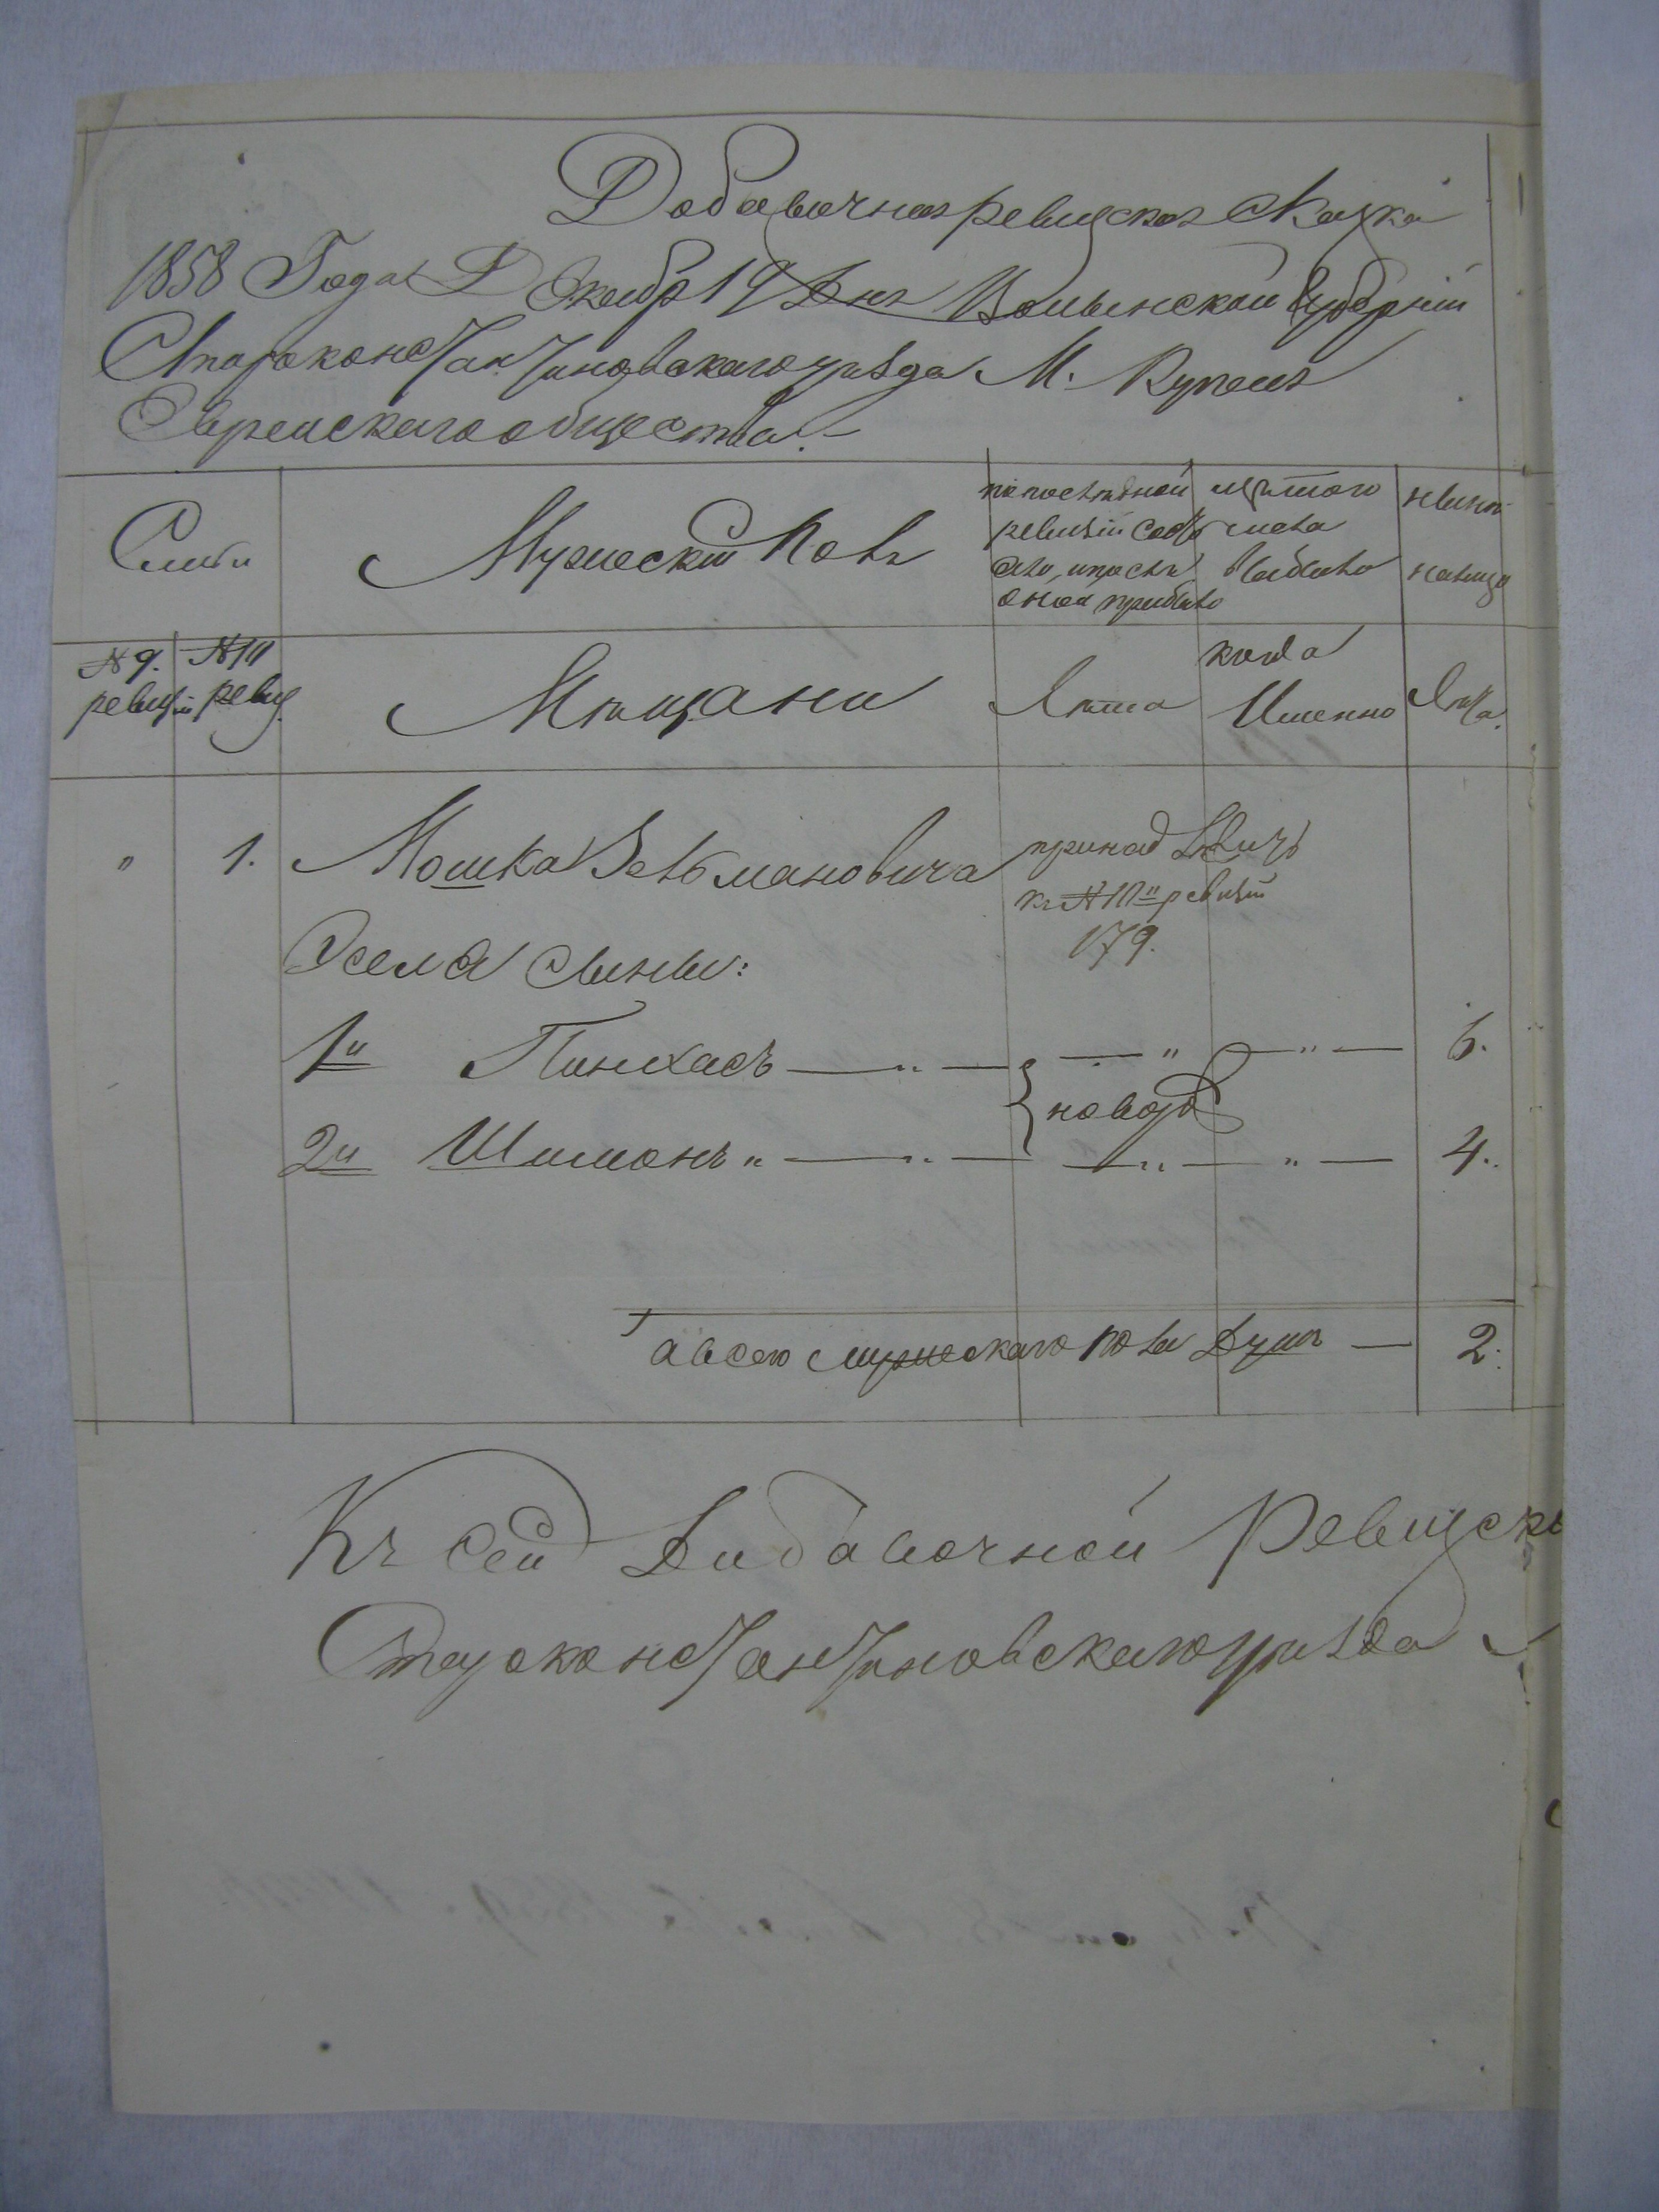 Добавочная ревизская сказка
1858 Года Декабр 19 Дня Волынской Губерніи
Староконстантиновскаго уѣзда М. Купеля
Еврейскаго общества.
Семьи
Мужескій полъ
по послѣдной ревизіи состояло, и послѣ оной прибыло
изъ того числа выбыло
нынѣ налицо
№ 9. ревизіи
№ 10 ревиз
Мѣщане
Лѣта
когда Именно
Лѣта.
" 1. Мошка Зельмановича принад
къ № 10й ревизіи
179.
Осела сыны:
1й Пинхасъ — " — — " — " — 6.
новорож
2й Шимонъ " — " — — " — " — 4.
а всего мужескаго пола Душъ — 2.
Къ сей Добавочной Ревизск
Староконстантиновскаго уѣзда